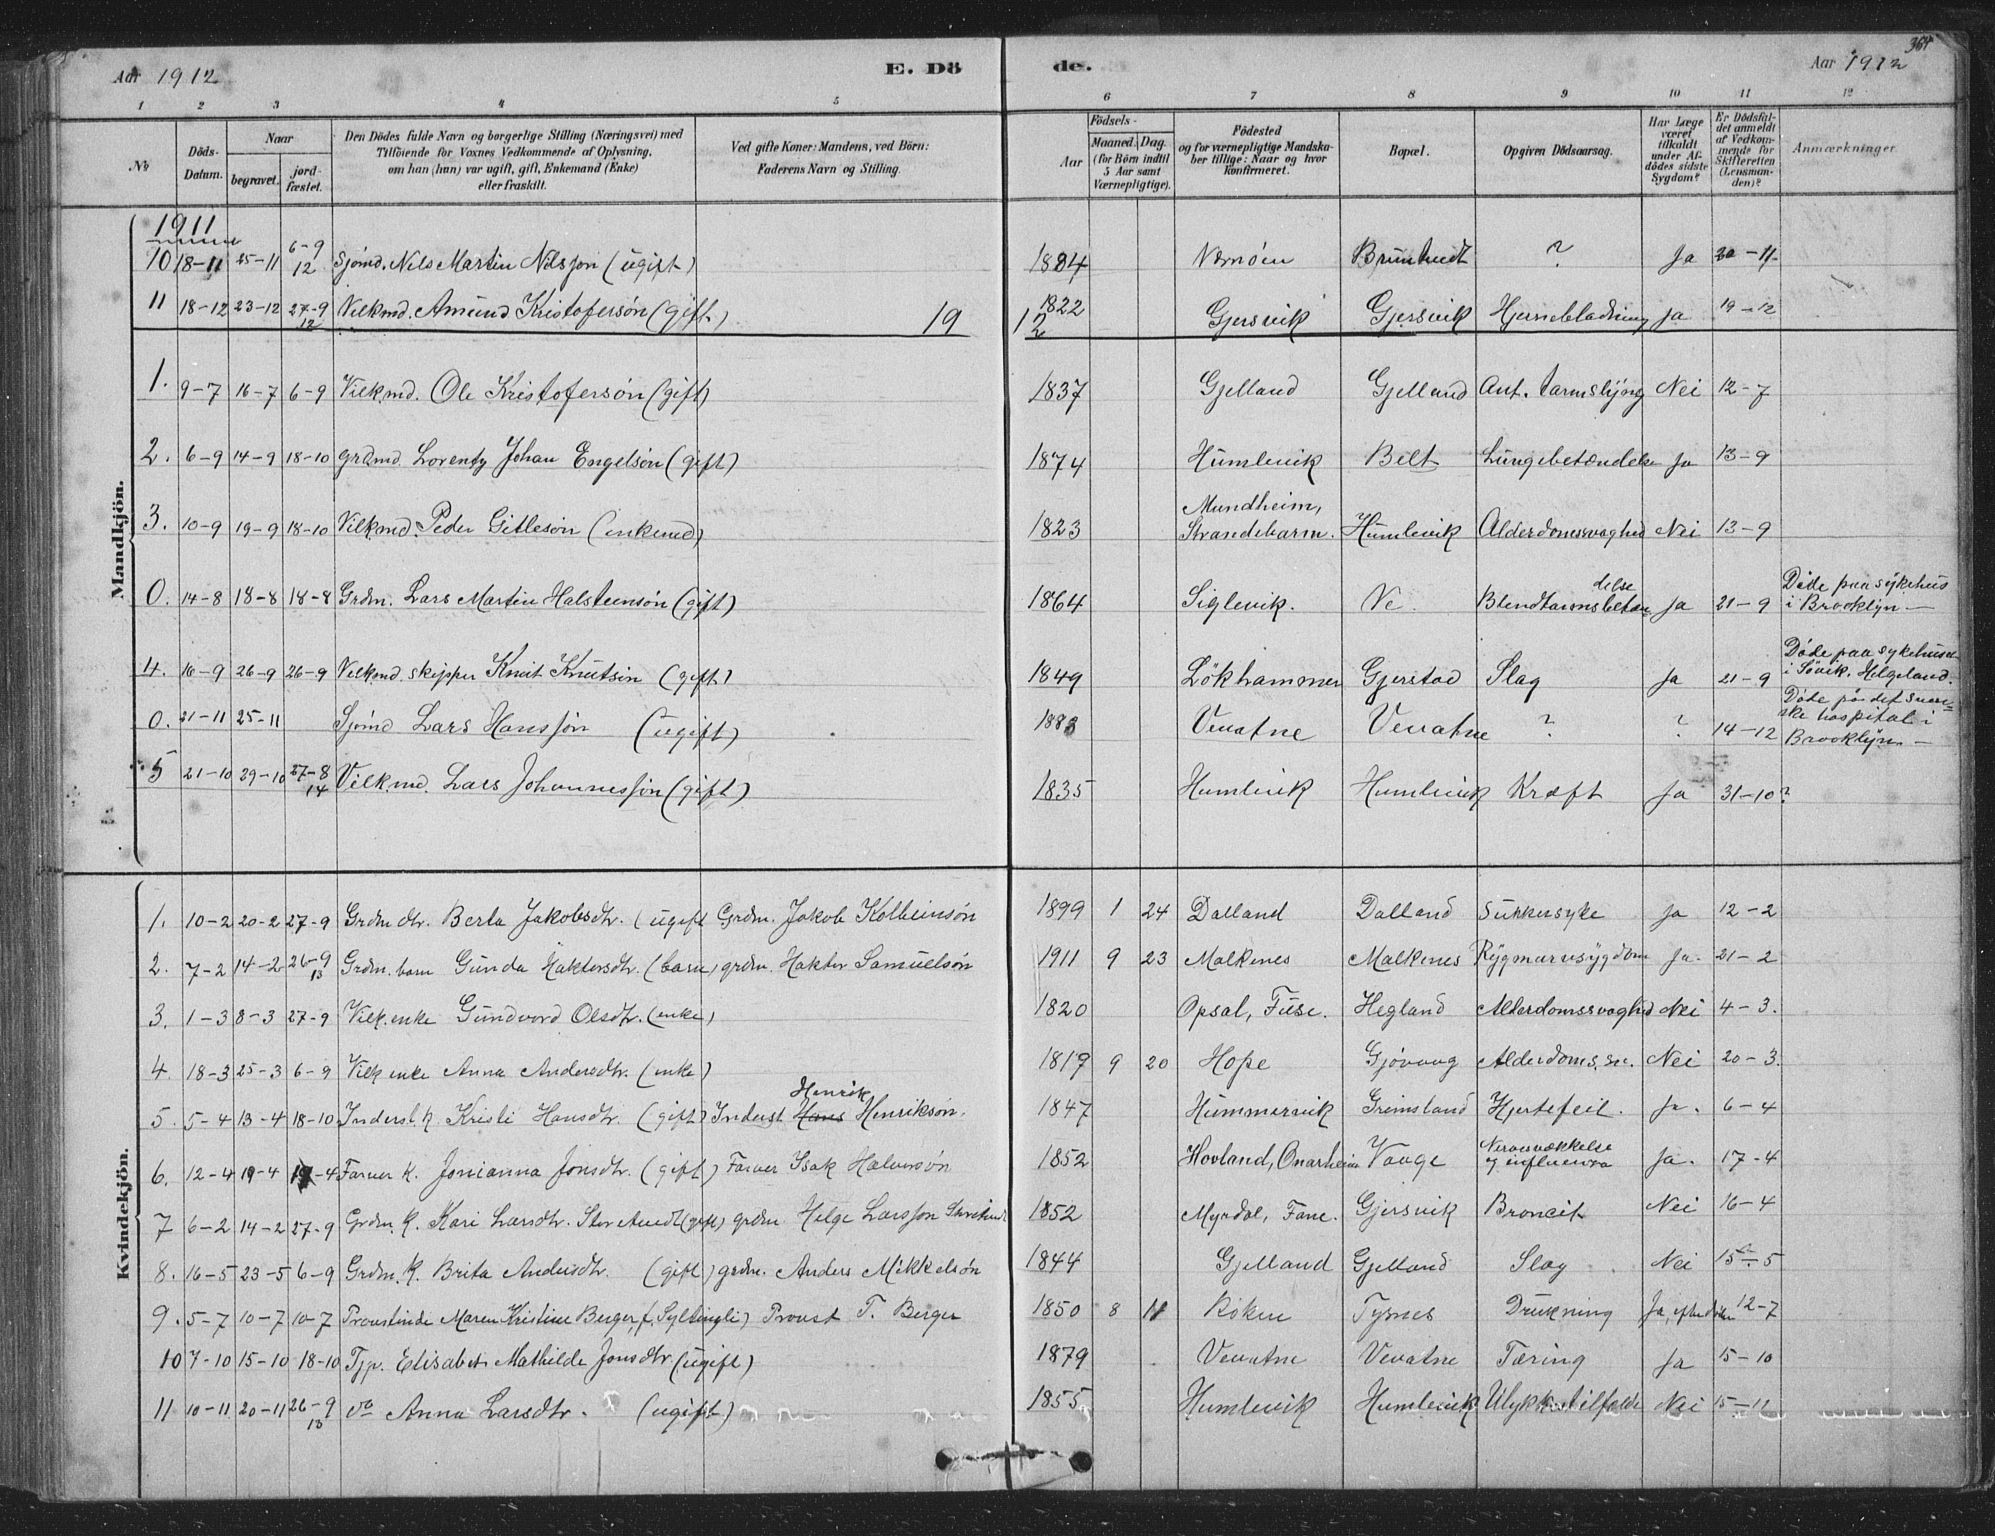 Aar 1912 E. Dö de. Aar 1912 364
1 2 3 4 5 6 7 8 9 10 11 12
No
Döds-Datum.
Naar
begravet.
jord-fæstet.
Den Dödes fulde Navn og borgerlige Stilling (Næringsvei) med
Tilföiende for Voxnes Vedkommende af Oplysning,
om han (hun) var ugift, gift, Enkemand (Enke)
eller fraskilt.
Ved gifte Koner: Mandens, ved Börn:
Faderens Navn og Stilling.
Födsels-
Aar
Maaned. Dag.
(for Börn indtil
5 Aar samt
Værnepligtige).
Födested
og for værnepligtige Mandska-
ber tillige: Naar og hvor
konfirmeret.
Bopæl.
Opgiven Dödsaarsag.
Har Læge
været
tilkaldt
under Af-
dödes sidste
Sygdom?
Er Dödsfal-
det anmeldt
af Vedkom-
mende for
Skifteretten
(Lensman-
den)?
Anmærkninger.
Mandkjön.
1911
10 18-11 25-11 6-9 12 Sjömd. Nils Martin Nilsson (ugift) 1884 Nernöen ? Ja 30-11
11 18-12 23-12 27-9 12 Vilkmd. Amund Kristofersön (gift) 19 12 1822 Gjersvik Gjersvik Hjerneblödning Ja 19-12
1. 9-7 16-7 6-9 Vilkmd. Ole Kristofersön (gift) 1837 Gjelland Gjelland Ant. tarmslyng Nei 12-7
2. 6-9 14-9 18-10 grdmd. Lorentz Johan Engelsön (gift) 1874 Humlevik Belt Lungebetændelse Ja 13-9
3. 10-9 19-9 18-10 Vilkmd. Peder Gitlesön (enkemd) 1823 Mundheim, Strandebarm. Humlevik Alderdomssvaghed Nei 13-9
0. 14-8 18-8 18-8 Grdm. Lars Martin Halsteensön (gift) 1864 Siglevik. Ve. Blendtarmsbetændelse Ja 21-9 Döde paa sykehus
i Brooklyn —
4. 16-9 26-9 26-9 Vilkmd. skipper Knut Knutsön (gift) 1849 Lökhammer Gjerstad Slag Ja 21-9 Döde paa sykehuset
i Sövik, Helgeland.
0. 21-11 25-11 Sjömd Lars Hansson (ugift) 1883 Vevatne Vevatne ? ? 14-12 Döde på det
hospital i
Brooklyn —
5 21-10 29-10 27-8 14 Vilk.md. Lars Johannesson (gift) 1835 Humlevik Humlevik Kræft Ja 31-10?
Kvindekjön.
1. 10-2 20-2 27-9 Grdm. dtr. Berta Jakobsdtr. (ugift Grdm. Jakob Kolbeinsön 1899 1 24 Dalland Dalland Sukkersyke Ja 12-2
2. 7-2 14-2 26-9 13 Grdm. barn Gunda Haktorsdtr. (barn) grdm. Haktor Samuelsön 1911 9 23 Malkenes Malkenes Rygmarvsygdom Ja. 21-2
3. 1-3 8-3 27-9 Vilk. enke Gundvord Olsdtr. (enke) 1820 Opsal, Fuse. Hegland Alderdomssvaghed Nei 4-3.
4. 18-3 25-3 6-9 Vilk enke Anna Andersdtr. (enke) 1819 9 20 Hope Gjövaag Alderdoms.sv. Nei 20-3.
5. 5-4 13-4 18-10 Inderst. k. Kristi Hansdtr. (gift) Inderst Hans Henrik Henriksön. 1847 Hummervik Grimsland Hjertefeil. Ja. 6-4
6. 12-4 19-4 19-4 Farver k. Jonianna Jonsdtr. (gift) Farver Isak Halversön 1852 Hovland, Onarheim Vaage Nervesvækkelse
og influensa Ja. 17-4
7 6-2 14-2 27-9 Grdm. k. Kari Larsdtr. (gift) grdm Helge Larsson 1852 Myrdal, Fane. Gjersvik Broncit Nei 16-4
8. 16-5 23-5 6-9 Grdm. k. Brita Andersdtr. (gift) grdm. Anders Mikkelsön 1844 Gjelland Gjelland Slag Nei 15-5
9. 5-7 10-7 10-7 Provstinde Maren Kristine Berger, f. Provst T. Berger 1850 8 11 Röken Tysnes Drukning Ja, efter döden 12-7
10 7-10 15-10 18-10 Tjp. Elisabet Mathilde Jonsdtr. (ugift) 1879 Vevatne Vevatne Tæring Ja 15-10
11 10-11 20-11 26-9 13 do Anna Larsdtr. (ugift) 1855 Humlevik Humlevik Ulykkestilfælde Nei 15-11